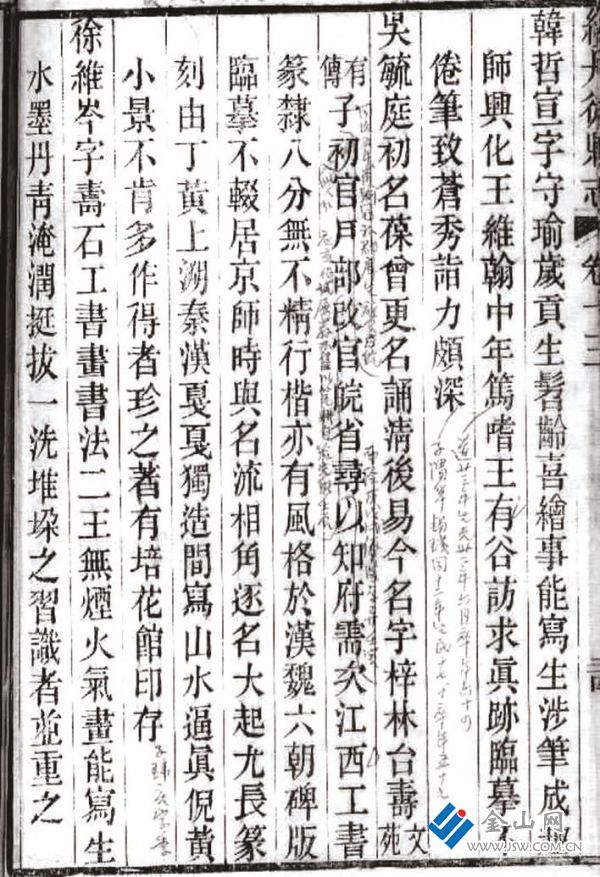 續丹徒縣志 卷十三
韓哲宣字守瑜歲貢生髫齡喜繪事能寫生涉筆成趣
師興化王維翰中年篤嗜王有谷訪求眞跡臨摹不
倦筆致蒼秀詣力頗深
吳毓庭初名葆曾更名誦清後易今名字梓林台壽文苑
有傳子初官戶部改官皖省尋以知府需次江西工書
篆隸八分無不精行楷亦有風格於漢魏六朝碑版
臨摹不輟居京師時與名流相角逐名大起尤長篆
刻由丁黃上溯秦漢戛戛獨造間寫山水逼眞倪黃
小景不肯多作得者珍之著有培花館印存
徐維岑字壽石工書畫書法二王無煙火氣畫能寫生
水墨丹靑淹潤挺拔一洗堆垛之習識者並重之
金山网
www.JSW.com.cn